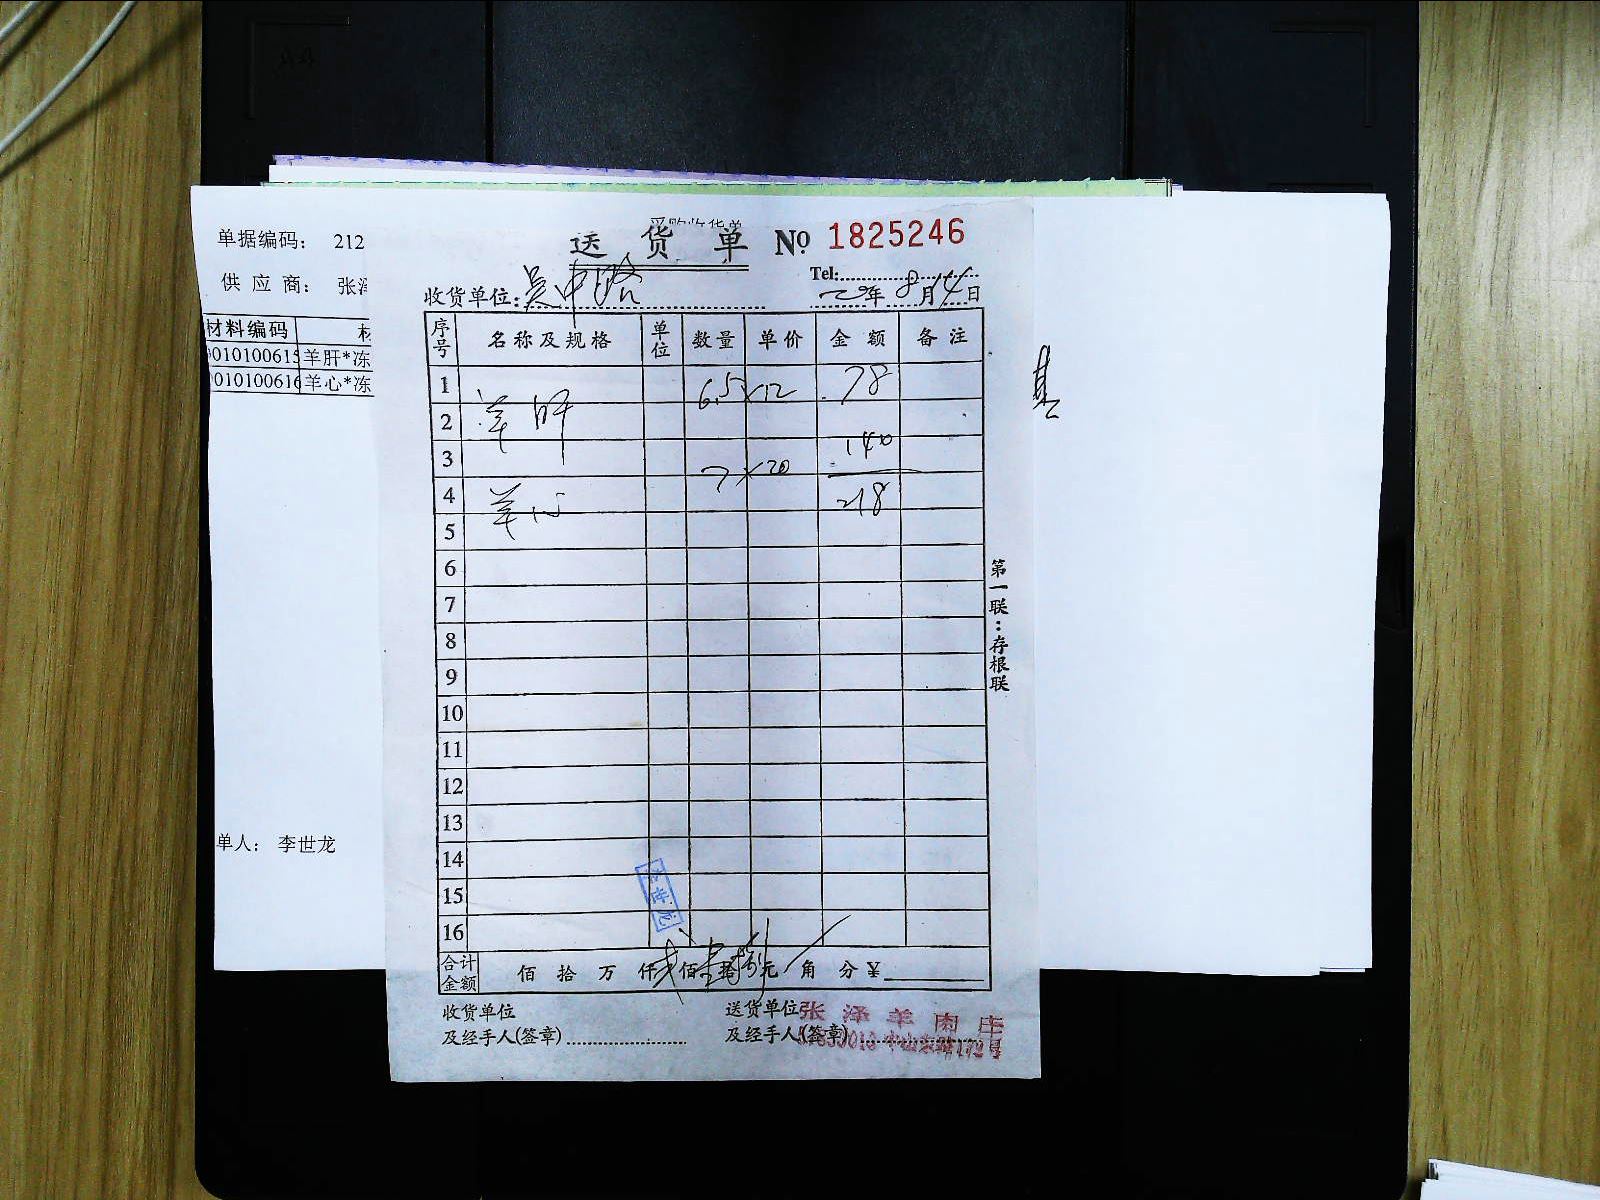 采购收货单
单据编码： 212
供 应 商： 张泽
材料编码 材
0010100615 羊肝*冻
0010100616 羊心*冻
单人： 李世龙
送 货 单 № 1825246
Tel:
收货单位: 吴中路 年 8 月 14 日
序号 名称及规格 单位 数量 单价 金额 备注
1 羊肝 6.5×12 78
2
3 7×20 140
4 羊心 218
5
6
7
8
9
10
11
12
13
14
15
16
李世龙
合计金额 佰 拾 万 仟 贰 佰 壹 拾 捌 元 角 分 ¥
收货单位 送货单位
及经手人(签章) 及经手人(签章)
张泽羊肉庄
第一联：存根联